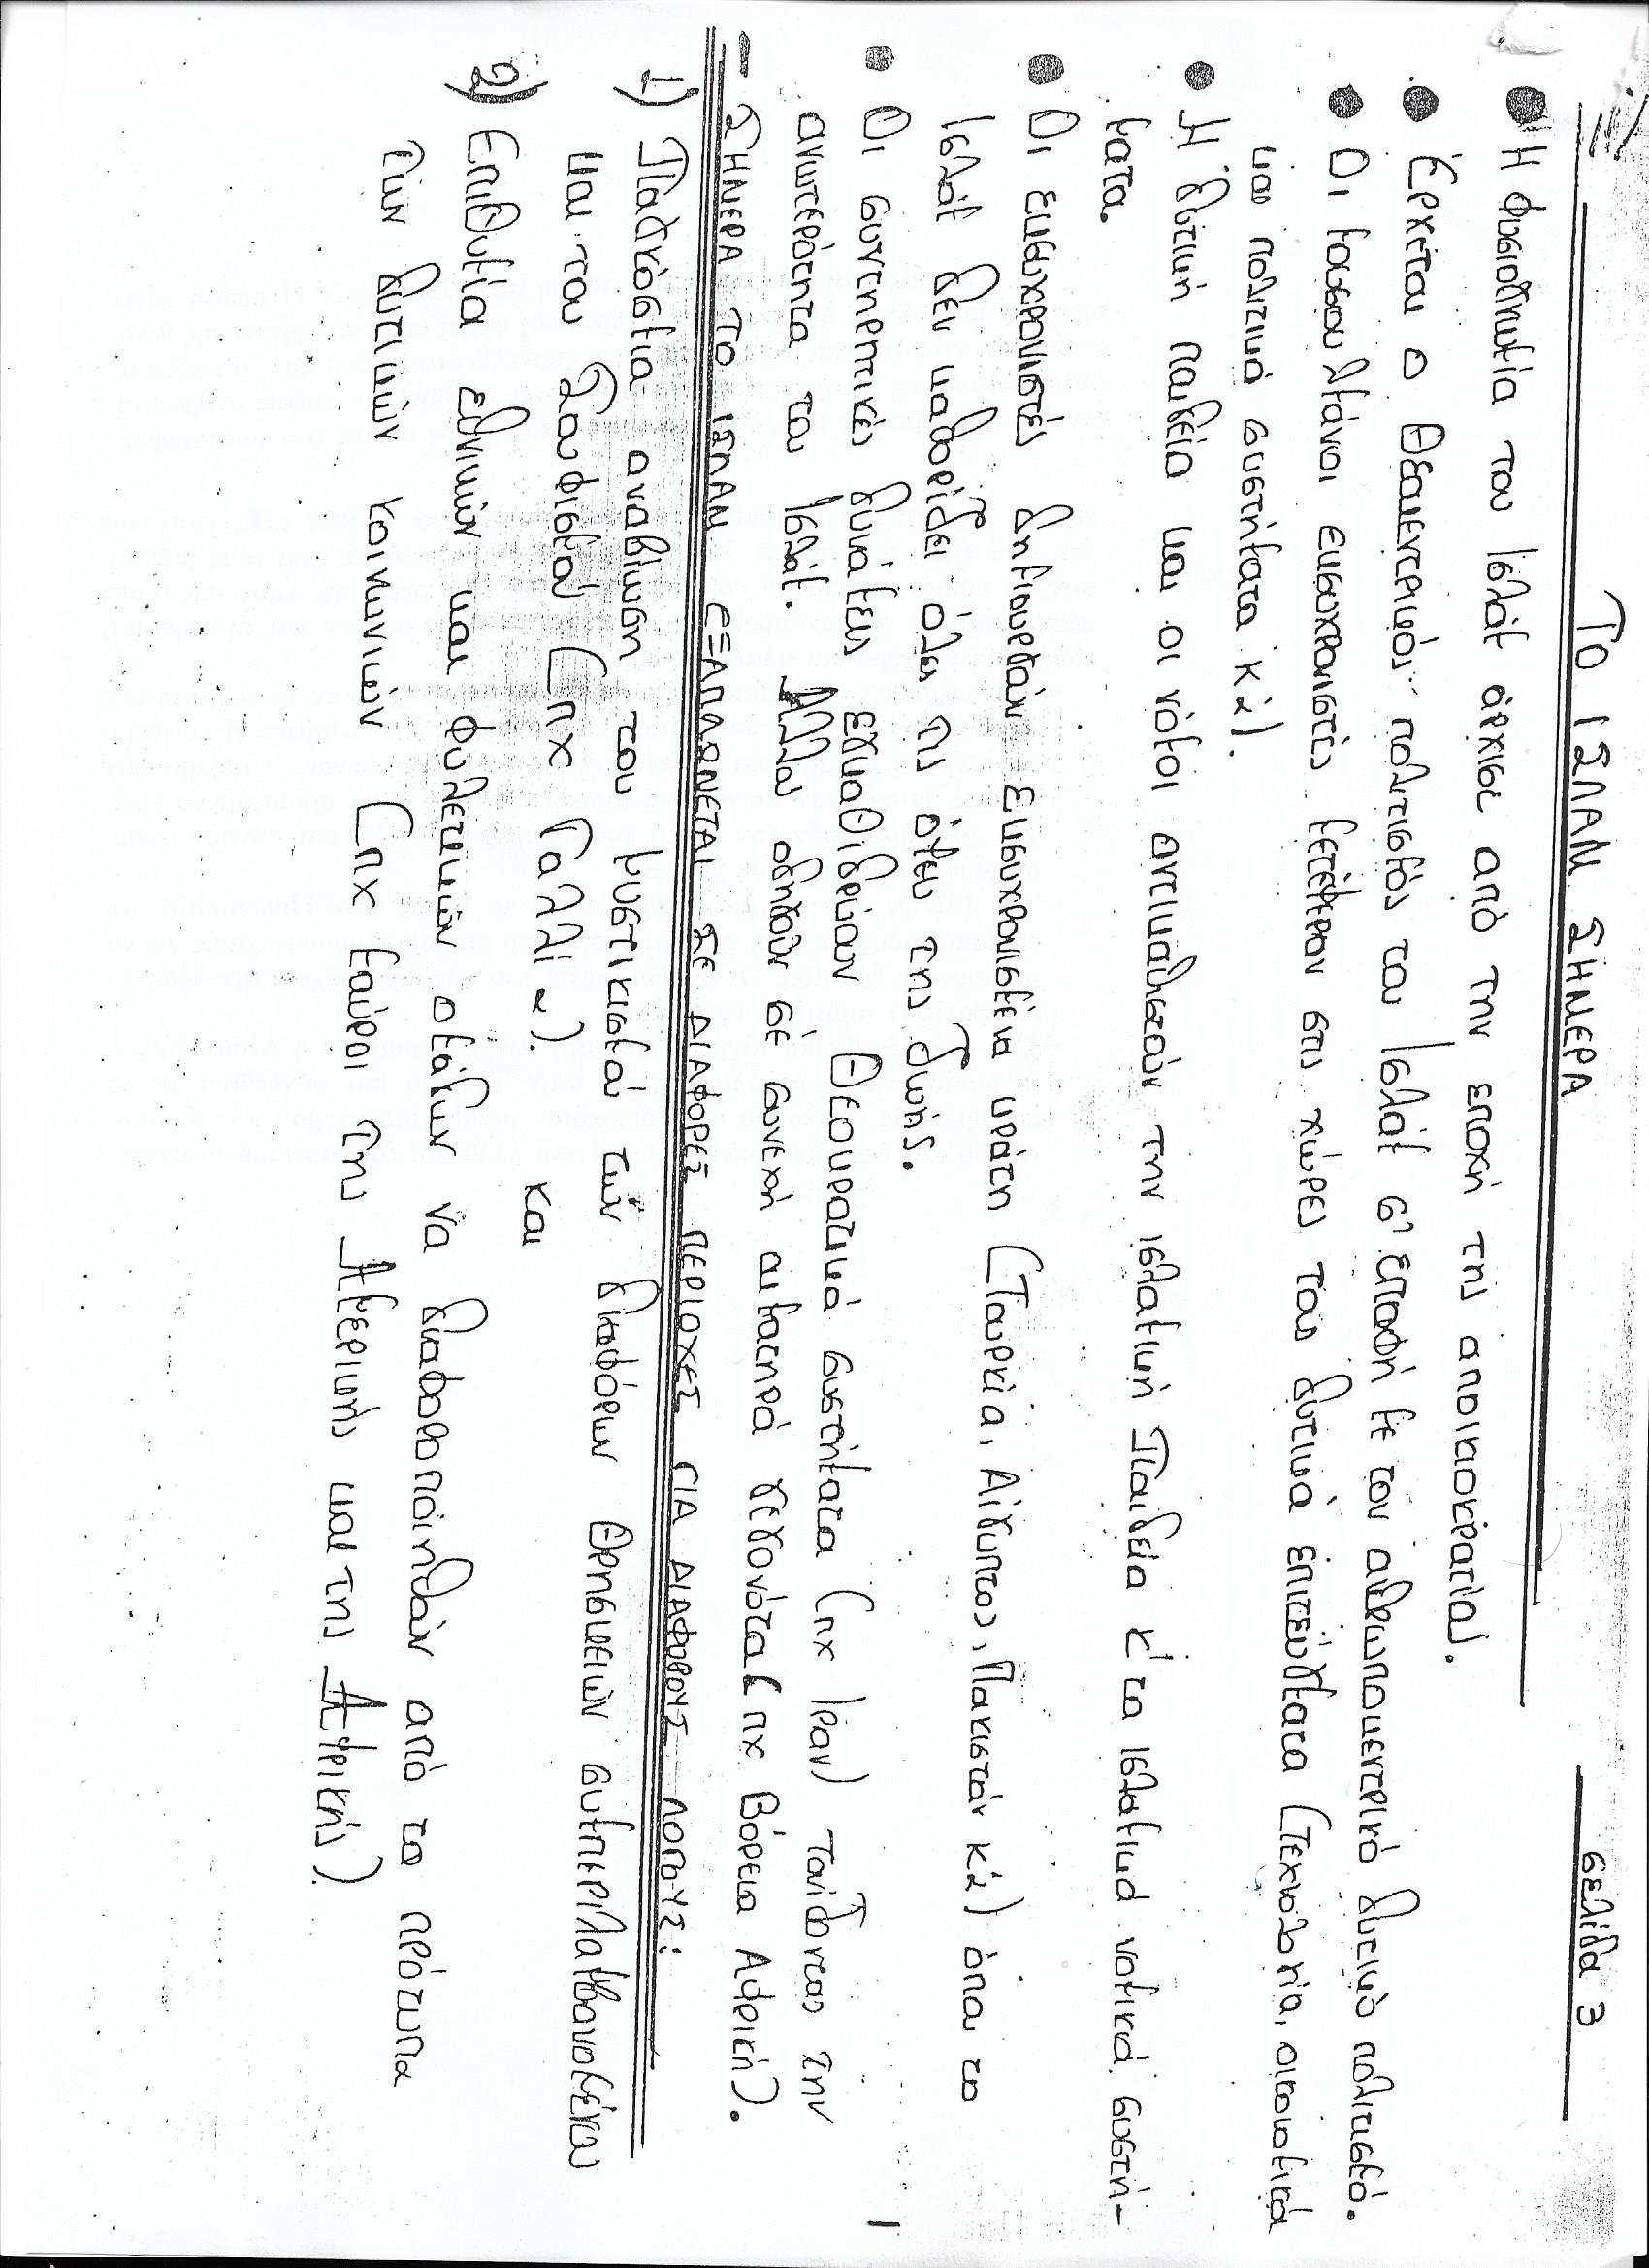 ΤΟ ΙΣΛΑΜ ΣΗΜΕΡΑ
σελίδα 3
• Η φυσιογνωμία του Ισλάμ άρχισε από την εποχή της αποικιοκρατίας.
• Έρχεται ο θεοκεντρικός πολιτισμός του Ισλάμ σ' επαφή με τον ανθρωποκεντρικό δυτικό πολιτισμό.
• Οι μουσουλμάνοι εκσυχρονιστές μετέφεραν στις χώρες τους δυτικά επιτεύγματα (τεχνολογία, οικονομικά
και πολιτικά συστήματα κ.ά).
• Η δυτική παιδεία και οι νόμοι αντικατέστησαν την ισλαμική Παιδεία κ' τα ισλαμικά νομικά συστή-
ματα.
• Οι εκσυχρονιστές δημιουργούν εκσυχρονισμένα κράτη (Τουρκία, Αίγυπτος, Πακιστάν κ.ά) όπου το
Ισλάμ δεν καθορίζει όλες τις όψεις της ζωής.
• Οι συντηρητικές δυνάμεις εγκαθιδρύουν Θεοκρατικά συστήματα (πχ Ιράν) τονίζοντας την
ανωτερότητα του Ισλάμ. Αλλού οδηγούν σε συνεχή αιματηρά γεγονότα (πχ Βόρεια Αφρική).
– ΣΗΜΕΡΑ ΤΟ ΙΣΛΑΜ ΕΞΑΠΛΩΝΕΤΑΙ ΣΕ ΔΙΑΦΟΡΕΣ ΠΕΡΙΟΧΕΣ ΓΙΑ ΔΙΑΦΟΡΟΥΣ ΛΟΓΟΥΣ:
1) Παγκόσμια αναβίωση του μυστικισμού των διαφόρων θρησκειών συμπεριλαμβανομένου
και του Σουφισμού (πχ Γαλλία).
και
2) Επιθυμία εθνικών και φυλετικών ομάδων να διαφοροποιηθούν από τα πρότυπα
των δυτικών κοινωνιών (πχ μαύροι της Αμερικής και της Αφρικής).